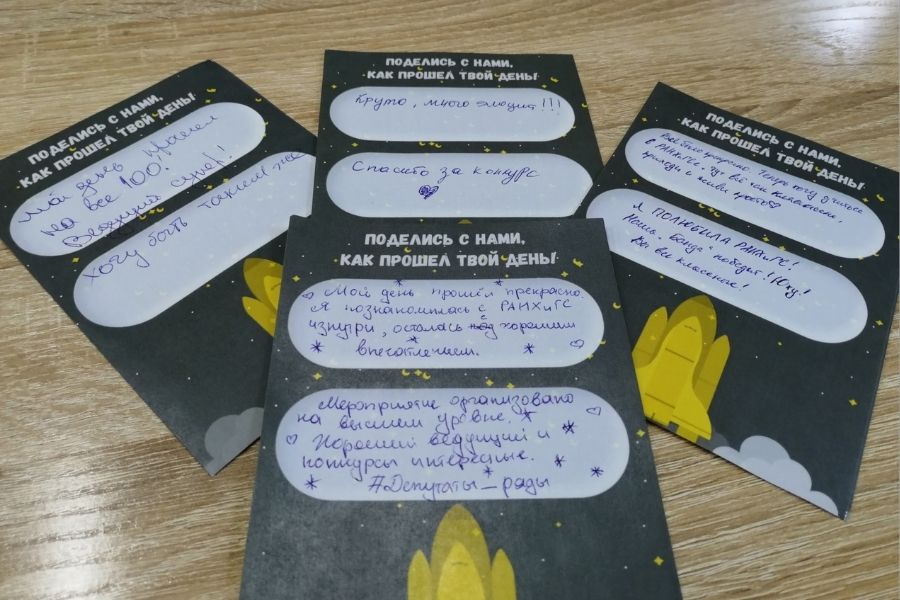 ПОДЕЛИСЬ С НАМИ,
КАК ПРОШЕЛ ТВОЙ ДЕНЬ!
Мой день прошел
на все 100!
Ведущий супер!
Хочу быть таким же
ПОДЕЛИСЬ С НАМИ,
КАК ПРОШЕЛ ТВОЙ ДЕНЬ!
Круто, много эмоций!!!
Спасибо за конкурс
ПОДЕЛИСЬ С НАМИ,
КАК ПРОШЕЛ ТВОЙ ДЕНЬ!
Всё было прекрасно. Теперь хочу учиться
в РАНХиГС. Тут всё так
приходи и живи просто
Я ПОЛЮБИЛА РАНХиГС!
Наша "Банда" победит!
Вы все классные!
ПОДЕЛИСЬ С НАМИ,
КАК ПРОШЕЛ ТВОЙ ДЕНЬ!
Мой день прошёл прекрасно.
Я познакомилась с РАНХиГС
изнутри, осталась с хорошим
впечатлением.
Мероприятие организовано
на высшем уровне.
Хороший ведущий и
конкурсы интересные.
#Депутаты_рады